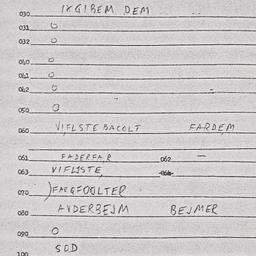 030 IXGIBEM DEM
031 O
032 O
040 O
041 O
042 O –
050 O
060 VIFLSTE BACOLT FARDEM
061 FADERFAR 062 –
063 VIFLISTE 064
070 )FARGFOOLTEP
080 AVDERBEJM BEJMER
090 O
SOD
100